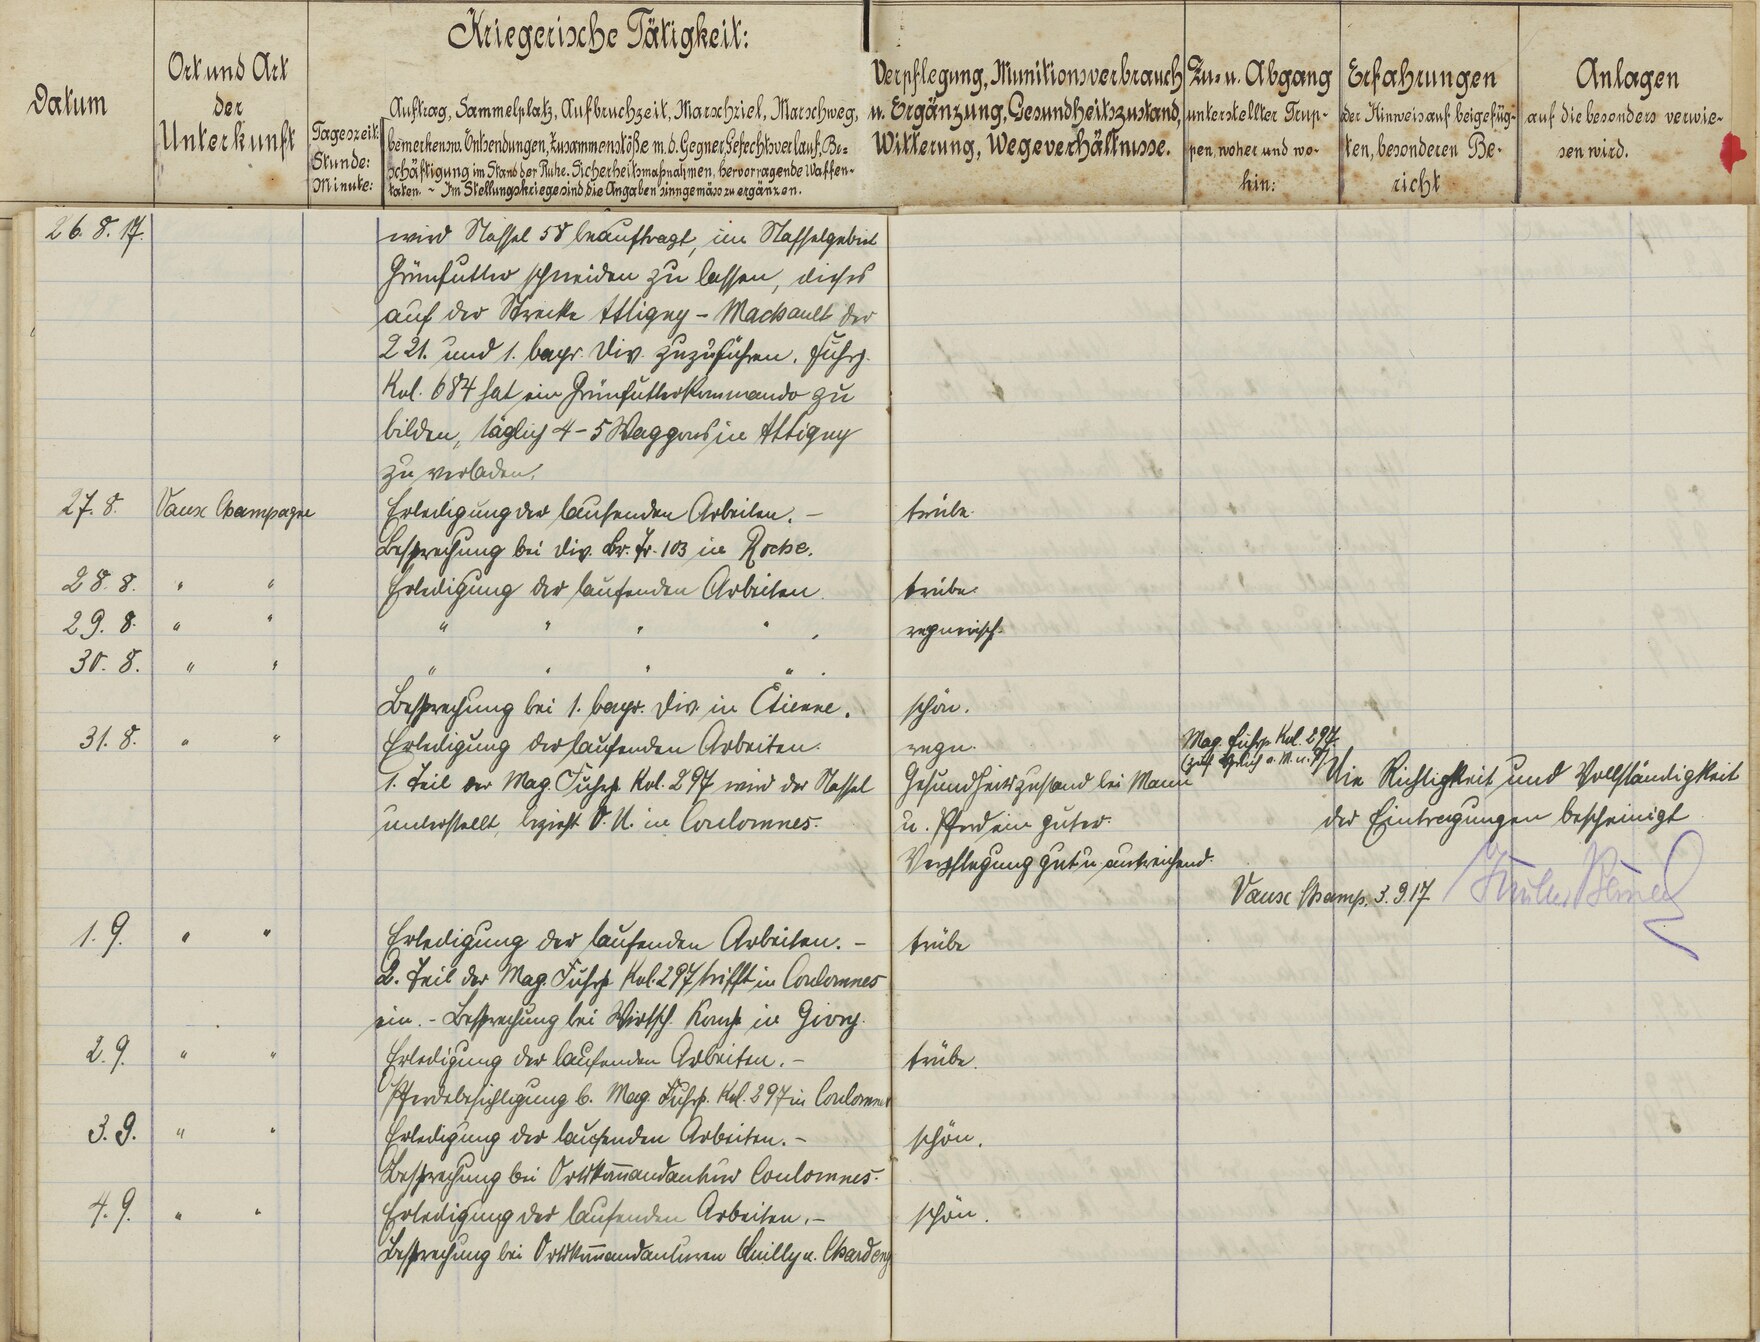 Kriegerische Tätigkeit:
Datum
Ort und Art
der
Unterkunft
Tageszeit:
Stunde:
Minute:
Auftrag, Sammelplatz, Aufbruchzeit, Marschziel, Marschweg,
bemerkensw. Entsendungen, Zusammenstöße m. d. Gegner, Gefechtsverlauf, Be-
schäftigung im Stand der Ruhe. Sicherheitsmaßnahmen, hervorragende Waffen-
taten. - Im Stellungskriege sind die Angaben sinngemäss zu ergänzen.
Verpflegung, Munitionsverbrauch
u. Ergänzung, Gesundheitszustand,
Witterung, Wegeverhältnisse.
Zu- u. Abgang
unterstellter Trup-
pen, woher und wo-
hin:
Erfahrungen
der Hinweis auf beigefüg-
ten, besonderen Be-
richt
Anlagen
auf die besonders verwie-
sen wird.
26. 8. 17. wird Staffel 58 beauftragt, im Staffelgebiet
Grünfutter schneiden zu lassen, dieses
auf der Strecke Attigny - Machault der
221. und 1. bayr. Div. zuzuführen. Fuhrp.
Kol. 684 hat ein Grünfutterkommando zu
bilden, täglich 4-5 Waggons in Attigny
zu verladen.
27. 8. Vaux Champagne Erledigung der laufenden Arbeiten. - trübe.
Besprechung bei Div. Br. Tr. 103 in Roche.
28. 8. " " Erledigung der laufenden Arbeiten. trübe.
29. 8. " " " " " " . regnerisch.
30. 8. " " " " " " .
Besprechung bei 1. bayr. Div. in Etienne. schön.
31. 8. " " Erledigung der laufenden Arbeiten. regn. Mag. Fuhrp. Kol. 297.
1. Teil der Mag. Fuhrp. Kol. 297 wird der Staffel Gesundheitszustand bei Mann Die Richtigkeit und Vollständigkeit
unterstellt, bezieht O. U. in Coulommes. u. Pferd ein guter. der Eintragungen bescheinigt
Verpflegung gut u. ausreichend.
Vaux Champ. 3. 9. 17
1. 9. " " Erledigung der laufenden Arbeiten. - trübe
2. Teil der Mag. Fuhrp. Kol. 297 trifft in Coulommes
ein. - Besprechung bei Wirtsch. Komp. in Givry.
2. 9. " " Erledigung der laufenden Arbeiten. - trübe.
Pferdebesichtigung b. Mag. Fuhrp. Kol. 297 in Coulommes
3. 9. " " Erledigung der laufenden Arbeiten. - schön.
Besprechung bei Ortskommandantur Coulommes.
4. 9. " " Erledigung der laufenden Arbeiten. - schön.
Besprechung bei Ortskommandanturen Quilly u. Chardeny